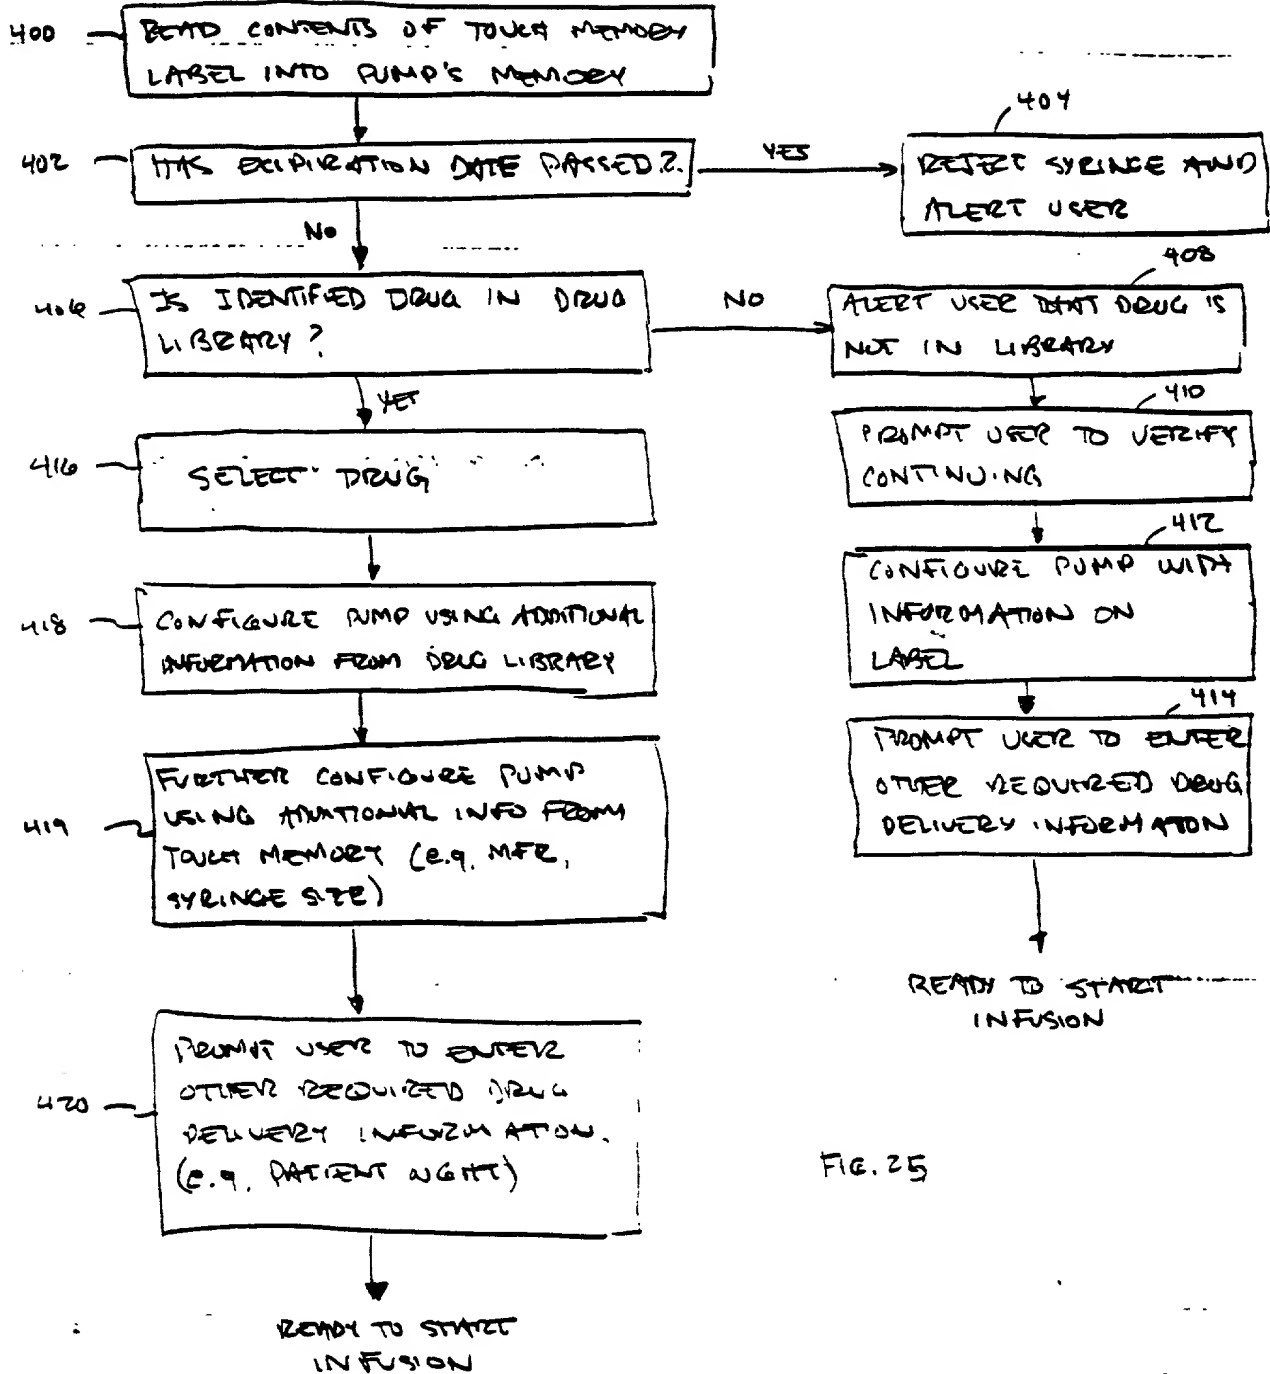 400
READ CONTENTS OF TOUCH MEMORY
LABEL INTO PUMP'S MEMORY
402
HAS EXPIRATION DATE PASSED?
YES
404
REJECT SYRINGE AND
ALERT USER
NO
406
IS IDENTIFIED DRUG IN DRUG
LIBRARY?
NO
408
ALERT USER THAT DRUG IS
NOT IN LIBRARY
YES
410
PROMPT USER TO VERIFY
CONTINUING
416
SELECT DRUG
412
CONFIGURE PUMP WITH
INFORMATION ON
LABEL
418
CONFIGURE PUMP USING ADDITIONAL
INFORMATION FROM DRUG LIBRARY
414
PROMPT USER TO ENTER
OTHER REQUIRED DRUG
DELIVERY INFORMATION
419
FURTHER CONFIGURE PUMP
USING ADDITIONAL INFO FROM
TOUCH MEMORY (e.g. MFR,
SYRINGE SIZE)
READY TO START
INFUSION
420
PROMPT USER TO ENTER
OTHER REQUIRED DRUG
DELIVERY INFORMATION.
(e.g. PATIENT WGHT)
FIG. 25
READY TO START
INFUSION